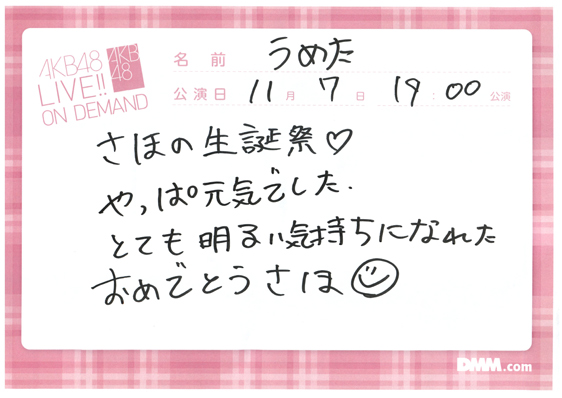 AKB48
LIVE!!
ON DEMAND
AKB
48
名前 うめた
公演日 11月 7日 19:00 公演
さほの生誕祭♡
やっぱ元気でした.
とても明るい気持ちになれた
おめでとうさほ☺
DMM.com